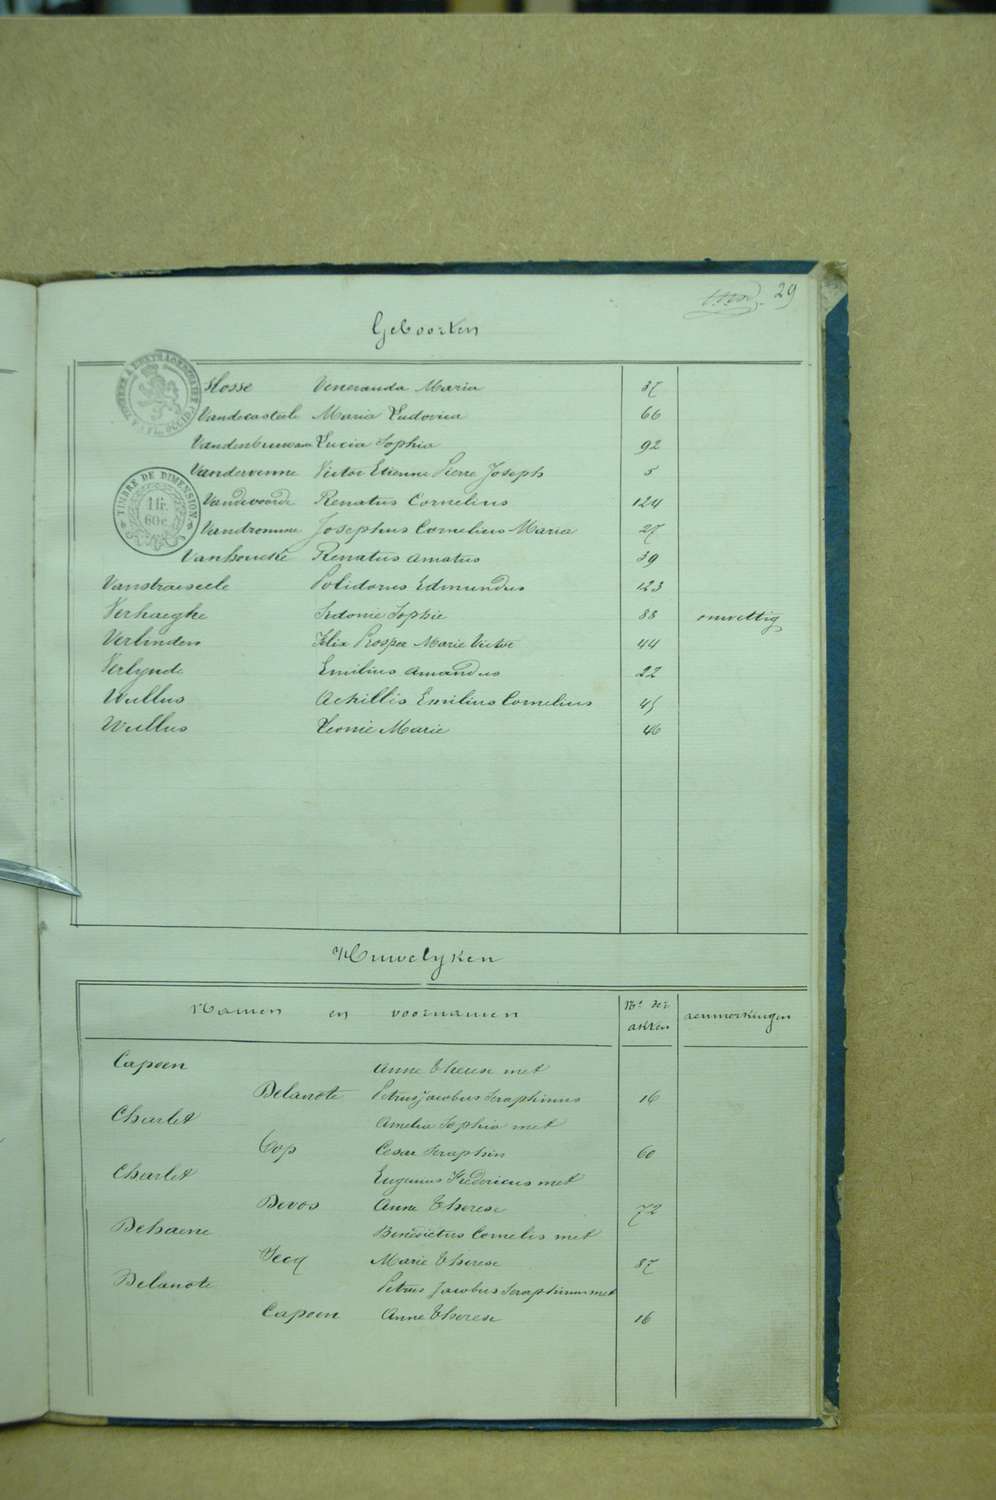 29
Geboorten
Slosse Veneranda Maria 37
Vandecasteele Maria Ludovica 66
Lucia Sophia 92
Vandervenne Victor Etienne Pierre Joseph 5
Vandevoorde Renatus Cornelius 124
Vandromme Josephus Cornelius Maria 27
Vanhoucke Renatus Amatus 39
Vanstraeseele Polidorus Edmundus 123
Verhaeghe Sidonie Sophie 88 onwettig
Verlinden Felix Prosper Marie Victor 44
Verlynde Emilius Amandus 22
Wullus Achillis Emilius Cornelius 45
Wullus Leonie Marie 46
TIMBRE DE DIMENSION
1 fr.
60 c.
Huwelyken
Namen en voornamen Nº der akten aenmerkingen
Capoen Anne Therese met
Delanote Petrus Jacobus Seraphinus 16
Charlet Amelia Sophia met
Cop Cesar Seraphin 60
Charlet Eugenius Fredericus met
Devos Anne Therese 72
Dehaene Benedictus Cornelis met
Marie Therese 87
Delanote Petrus Jacobus Seraphinus met
Capoen Anne Therese 16